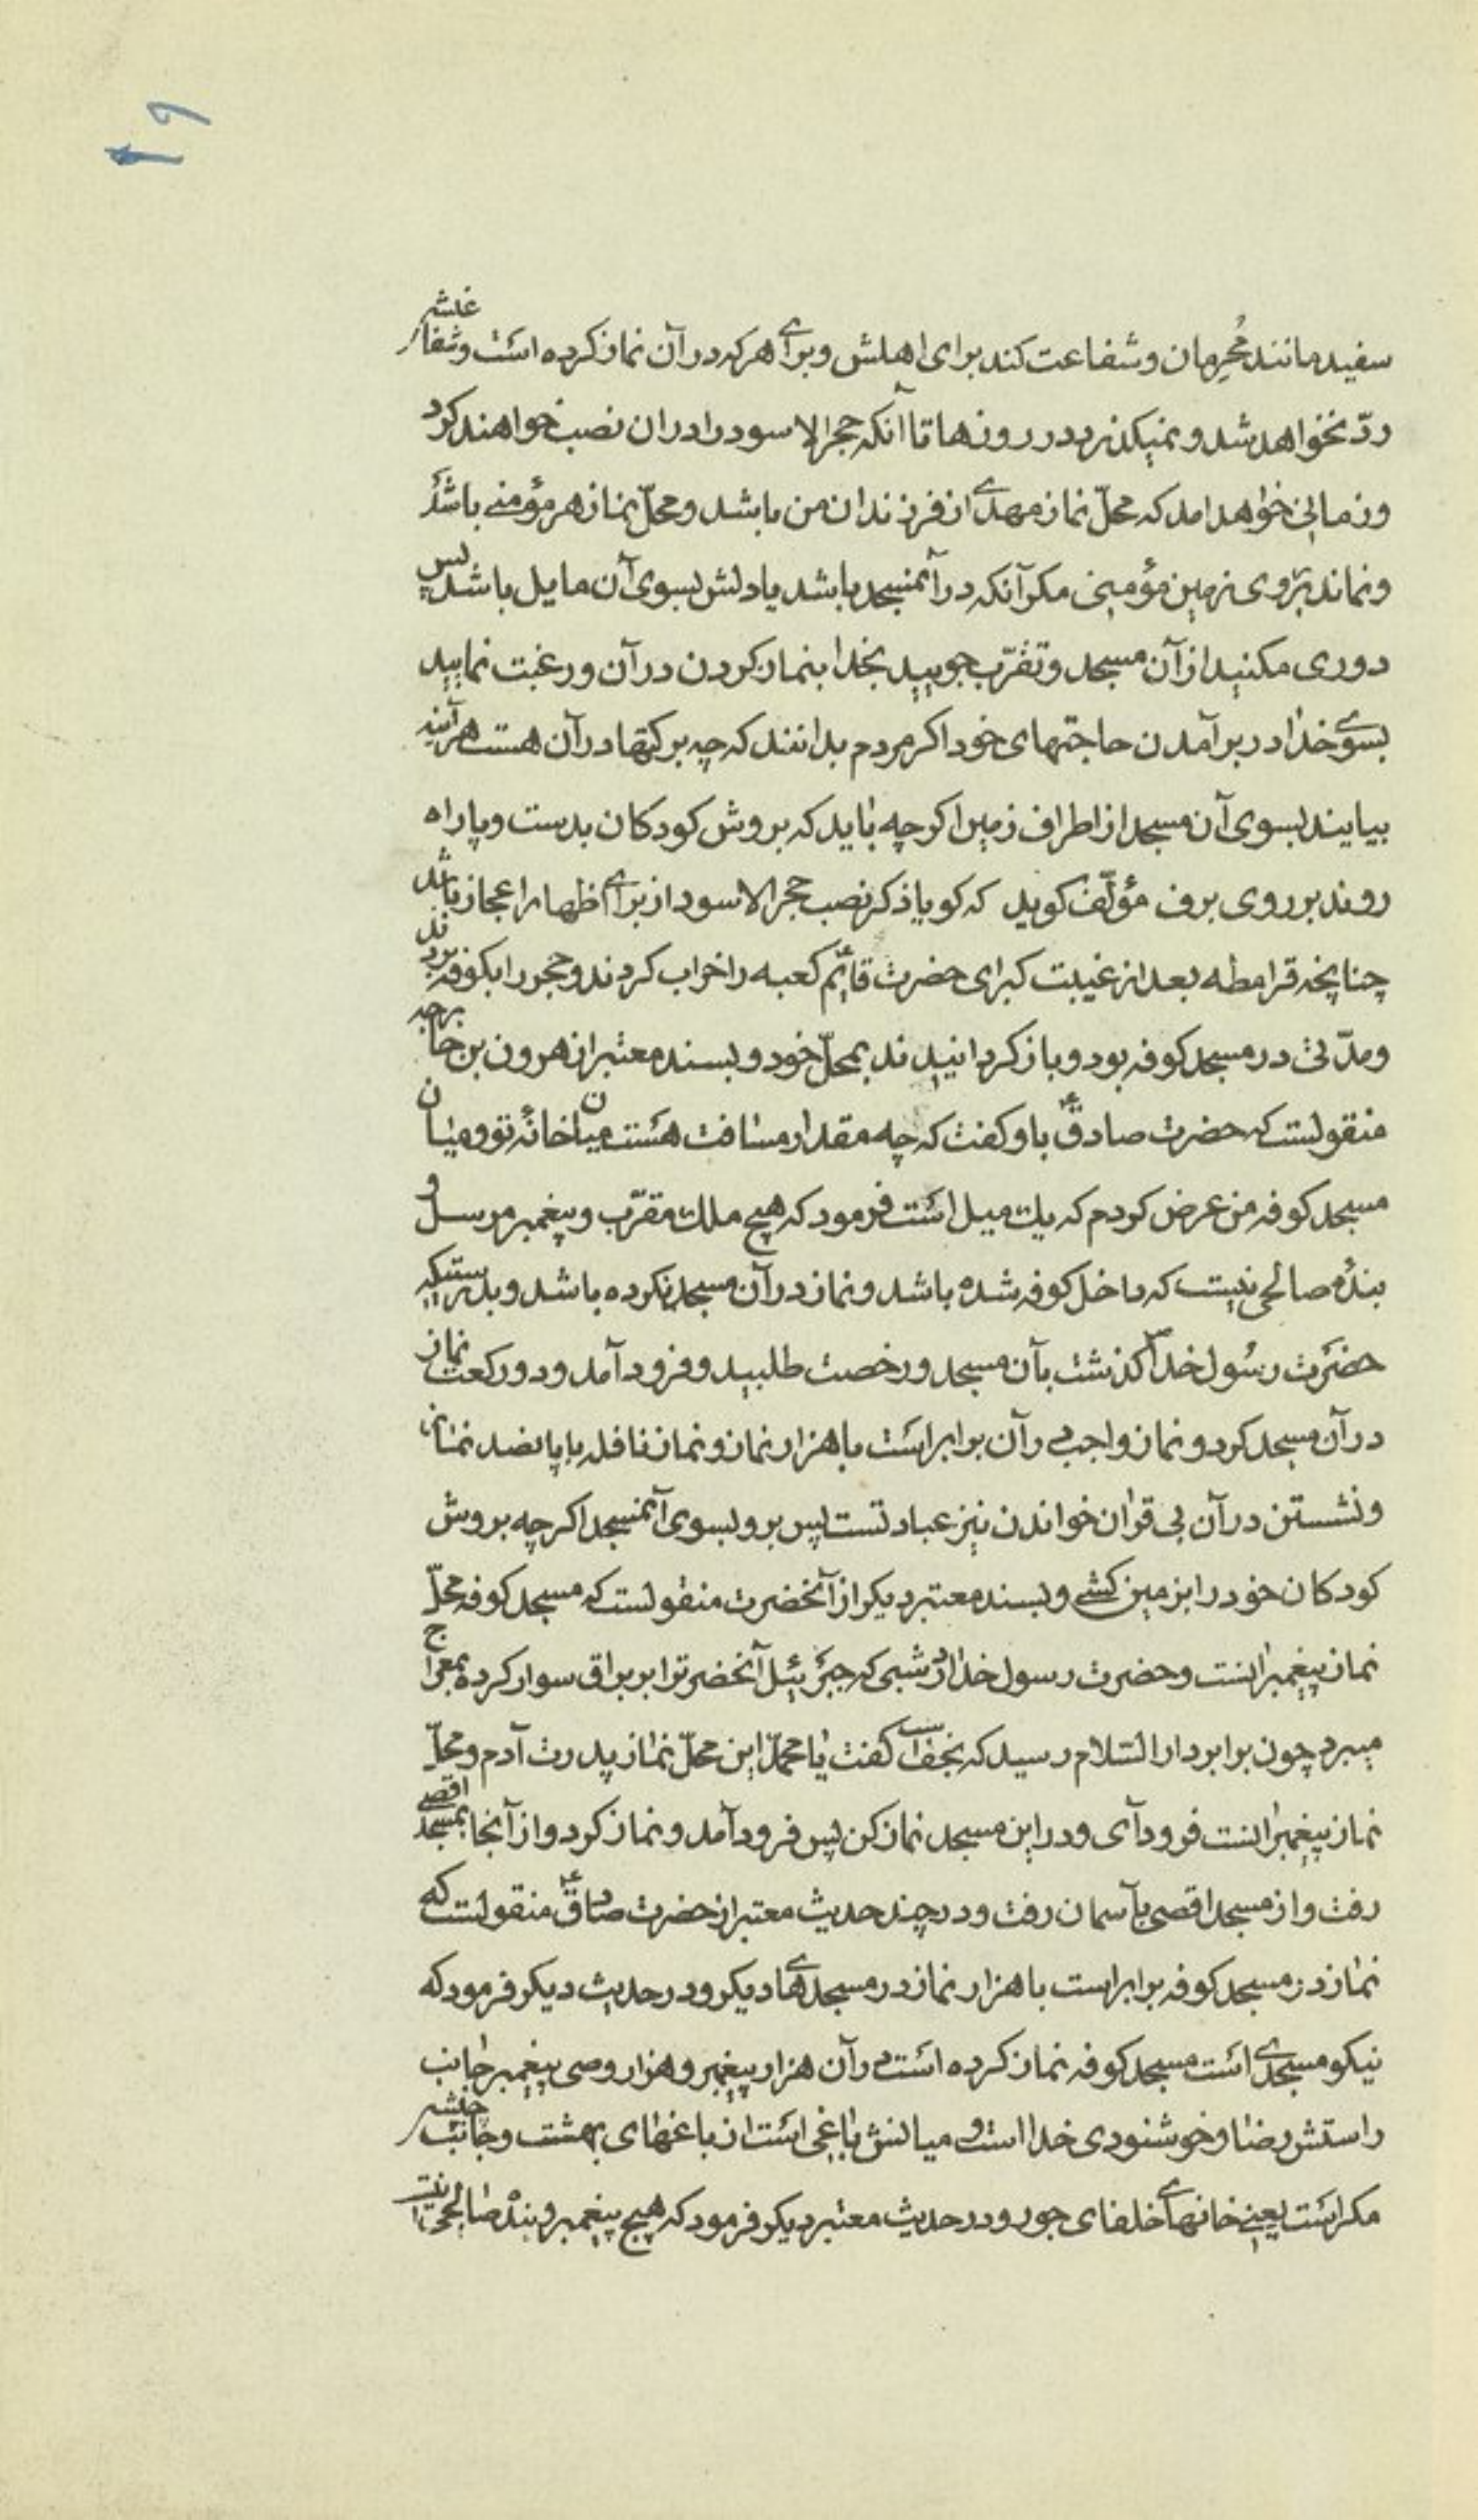 ۱۹
سفید مانند مُحرِمان و شفاعت کند برای اهلش و برای هر که در آن نماز کرده است و شفاعتش
ردّ نخواهد شد و نمیکذرد در روزها تا آنکه حجر الاسود را در ان نصب خواهند کرد
و زمانی خواهد امد که محلّ نماز مهدی از فرزندان من باشد و محلّ نماز هر مؤمنے باشد
و نماند بر روی زمین مؤمنی مکر آنکه در آنمسجد باشد یا دلش بسوی آن مایل باشد پس
دوری مکنید از آن مسجد و تقرّب جویید بخدا بنماز کردن در آن و رغبت نمایید
بسوی خدا در بر آمدن حاجتهای خود اکر مردم بدانند که چه برکتها در آن هست هر آینه
بیایند بسوی آن مسجد از اطراف زمین اکر چه باید که بروش کودکان بدست و پا راه
روند بر روی برف مؤلّف کوید که کویا ذکر نصب حجر الاسود از برای اظهار اعجاز باشد
چنانچه قرامطه بعد از غیبت کبرای حضرت قایم ع کعبه را خراب کردند و حجر را بکوفه بردند
و مدّتی در مسجد کوفه بود و باز کردانیدند بمحلّ خود و بسند معتبر از هرون بن خارجه
منقولست که حضرت صادق ع باو کفت که چه مقدار مسافت هست میان خانهٔ تو و میان
مسجد کوفه من عرض کردم که یک میل است فرمود که هیچ ملک مقرّب و پیغمبر مرسل و
بندهٔ صالحی نیست که داخل کوفه شده باشد و نماز در آن مسجد نکرده باشد و بدرستیکه
حضرت رسول خدا ص کذشت بآن مسجد و رخصت طلبید و فرود آمد و دو رکعت نماز
در آن مسجد کرد و نماز واجب در آن برابر است با هزار نماز و نماز نافله با پانصد نماز
و نشستن در آن بی قرآن خواندن نیز عبادتست پس برو بسوی آنمسجد اکر چه بروش
کودکان خود را بزمین کشے و بسند معتبر دیکر از آنحضرت منقولست که مسجد کوفه محلّ
نماز پیغمبرانست و حضرت رسول خدا در شبی که جبرئیل آنحضرترا بر براق سوار کرده بمعراج
میبرد چون برابر دار السّلام رسید که نجف است کفت یا محمّد این محلّ نماز پدرت آدم و محلّ
نماز پیغمبرانست فرود آی و در این مسجد نماز کن پس فرود آمد و نماز کرد و از آنجا بمسجد اقصی
رفت و از مسجد اقصی بآسمان رفت و در چند حدیث معتبر از حضرت صادق ع منقولست که
نماز در مسجد کوفه برابر است با هزار نماز در مسجدهای دیکر و در حدیث دیکر فرمود که
نیکو مسجدی است مسجد کوفه نماز کرده است در آن هزار پیغمبر و هزار وصی پیغمبر جانب
راستش رضا و خوشنودی خدا است و میانش باغی است از باغهای بهشت و جانب چپش
مکر است یعنے خانهای خلفای جور و در حدیث معتبر دیکر فرمود که هیچ پیغمبر و بنده صالحی نیست